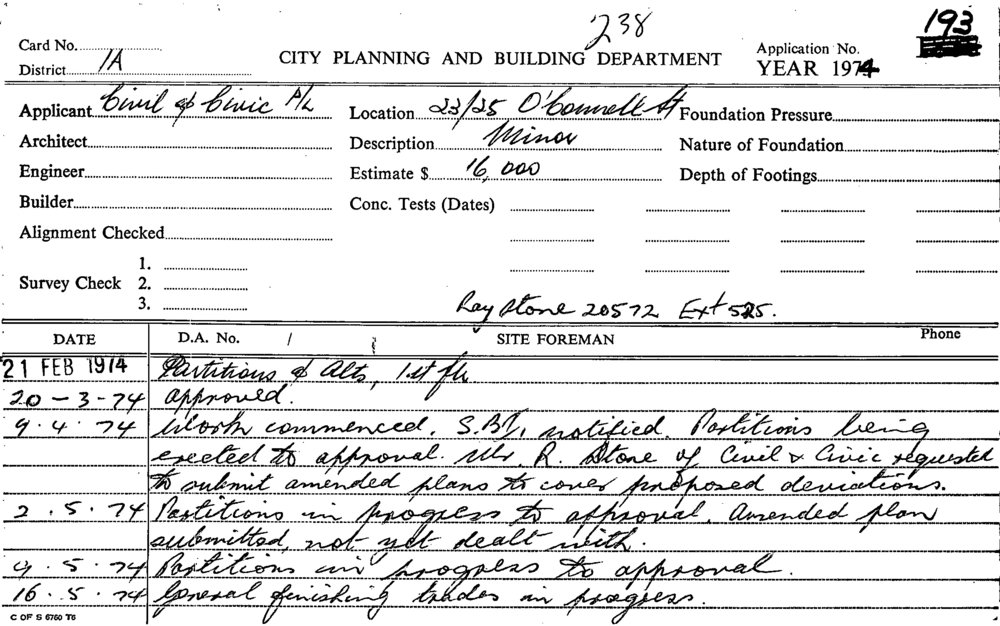 238
193
Card No.
District 1A
CITY PLANNING AND BUILDING DEPARTMENT
Application No.
YEAR 1974
Applicant Civil & Civic P/L
Location 23/25 O'Connell St
Foundation Pressure
Architect
Description Minor
Nature of Foundation
Engineer
Estimate $ 16,000
Depth of Footings
Builder
Conc. Tests (Dates)
Alignment Checked
Survey Check
1.
2.
3.
Ray Stone 20572 Ext 525.
DATE
D.A. No. /
SITE FOREMAN
Phone
21 FEB 1974 Partitions & Alts, 1st flr.
20-3-74 approved.
9.4.74 Work commenced. S.B.I. notified. Partitions being
erected to approval. Mr. R. Stone of Civil & Civic requested
to submit amended plans to cover proposed deviations.
2.5.74 Partitions in progress to approval. Amended plan
submitted, not yet dealt with.
9.5.74 Partitions in progress to approval.
16.5.74 General finishing trades in progress.
C OF S 6760 T6